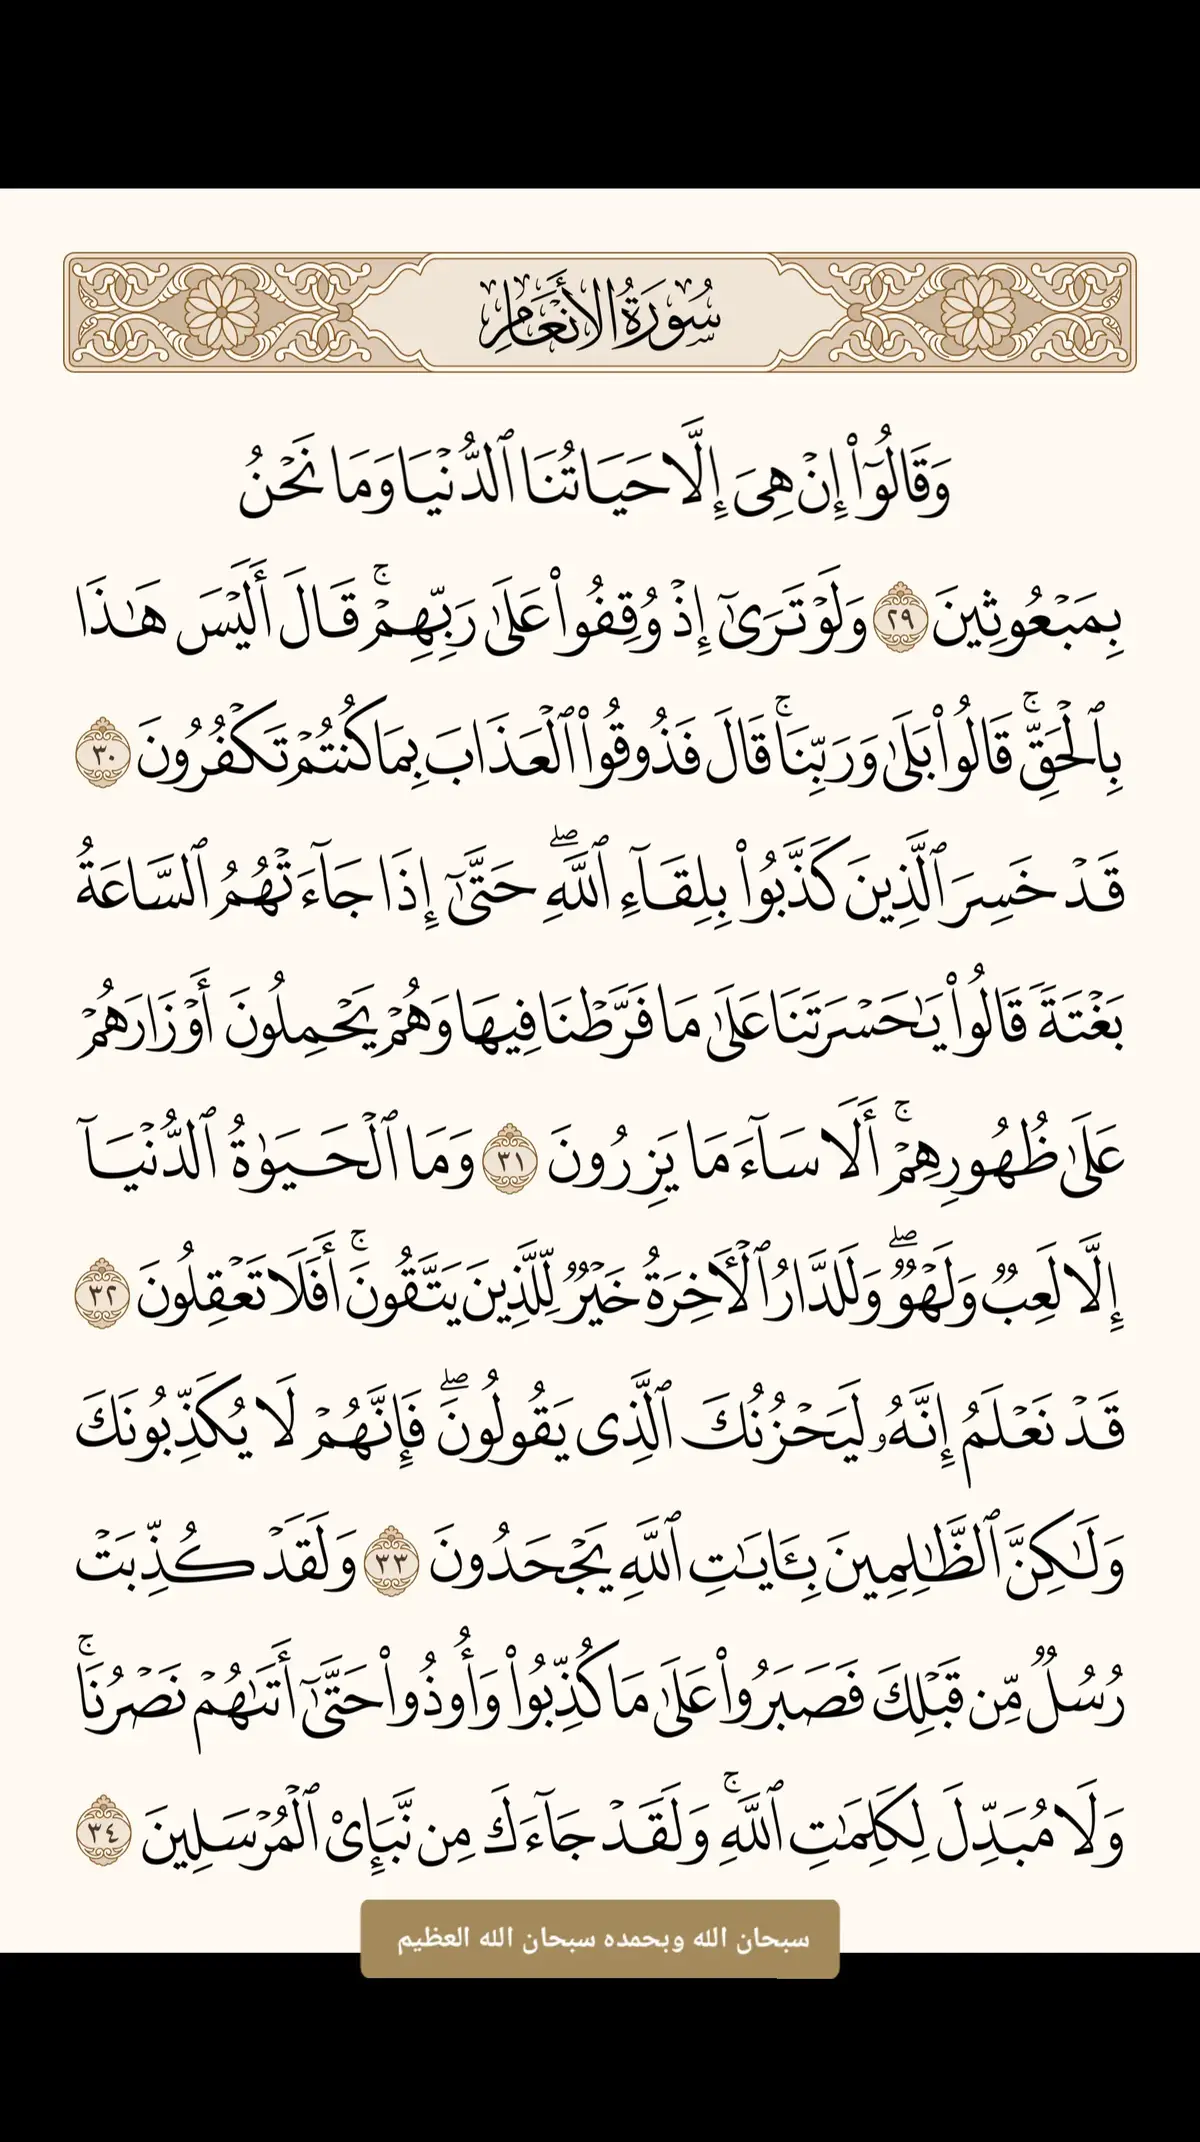 سُورَةُ الْأَنْعَامِ
وَقَالُوٓا۟ إِنْ هِىَ إِلَّا حَيَاتُنَا ٱلدُّنْيَا وَمَا نَحْنُ
بِمَبْعُوثِينَ ٢٩ وَلَوْ تَرَىٰٓ إِذْ وُقِفُوا۟ عَلَىٰ رَبِّهِمْ ۚ قَالَ أَلَيْسَ هَـٰذَا
بِٱلْحَقِّ ۚ قَالُوا۟ بَلَىٰ وَرَبِّنَا ۚ قَالَ فَذُوقُوا۟ ٱلْعَذَابَ بِمَا كُنتُمْ تَكْفُرُونَ ٣٠
قَدْ خَسِرَ ٱلَّذِينَ كَذَّبُوا۟ بِلِقَآءِ ٱللَّهِ ۖ حَتَّىٰٓ إِذَا جَآءَتْهُمُ ٱلسَّاعَةُ
بَغْتَةً قَالُوا۟ يَـٰحَسْرَتَنَا عَلَىٰ مَا فَرَّطْنَا فِيهَا وَهُمْ يَحْمِلُونَ أَوْزَارَهُمْ
عَلَىٰ ظُهُورِهِمْ ۚ أَلَا سَآءَ مَا يَزِرُونَ ٣١ وَمَا ٱلْحَيَوٰةُ ٱلدُّنْيَآ
إِلَّا لَعِبٌ وَلَهْوٌ ۖ وَلَلدَّارُ ٱلْـَٔاخِرَةُ خَيْرٌ لِّلَّذِينَ يَتَّقُونَ ۚ أَفَلَا تَعْقِلُونَ ٣٢
قَدْ نَعْلَمُ إِنَّهُۥ لَيَحْزُنُكَ ٱلَّذِى يَقُولُونَ ۖ فَإِنَّهُمْ لَا يُكَذِّبُونَكَ
وَلَـٰكِنَّ ٱلظَّـٰلِمِينَ بِـَٔايَـٰتِ ٱللَّهِ يَجْحَدُونَ ٣٣ وَلَقَدْ كُذِّبَتْ
رُسُلٌ مِّن قَبْلِكَ فَصَبَرُوا۟ عَلَىٰ مَا كُذِّبُوا۟ وَأُوذُوا۟ حَتَّىٰٓ أَتَىٰهُمْ نَصْرُنَا ۚ
وَلَا مُبَدِّلَ لِكَلِمَـٰتِ ٱللَّهِ ۚ وَلَقَدْ جَآءَكَ مِن نَّبَإِى۟ ٱلْمُرْسَلِينَ ٣٤
سبحان الله وبحمده سبحان الله العظيم